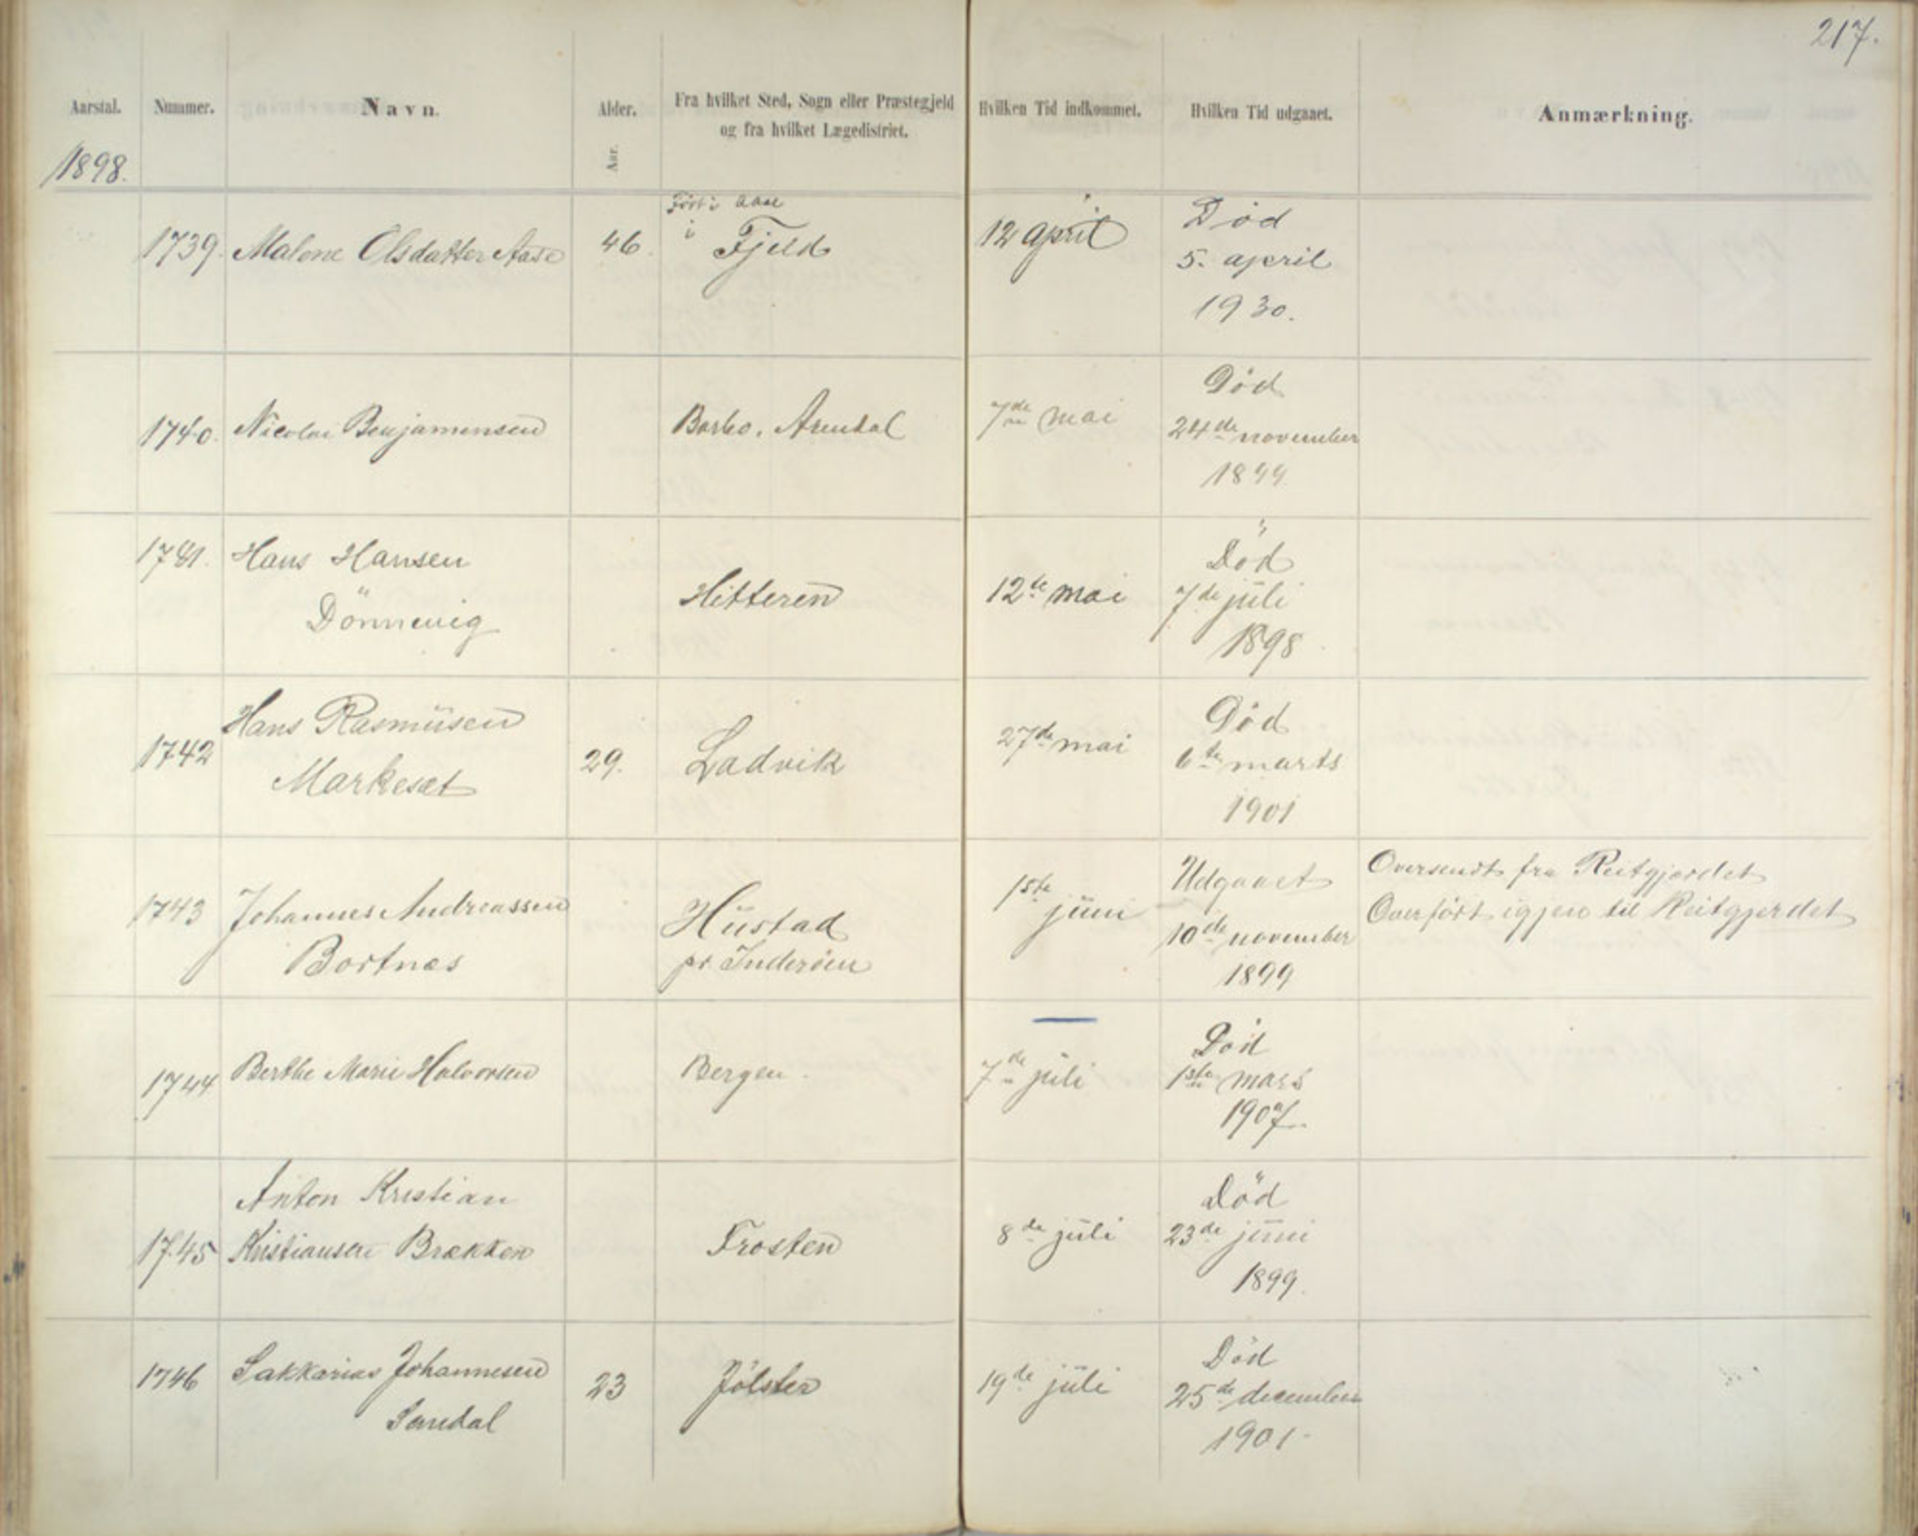 217.
Aarstal. Nummer. Navn. Alder. Fra hvilket Sted, Sogn eller Præstegjeld Hvilken Tid indkommet. Hvilken Tid udgaaet. Anmærkning.
og fra hvilket Lægedistrict.
Aar.
1898.
Født i Aase
1739. Malene Olsdatter Aase 46. i Fjeld 12 april Død
5. april
1930.
1740. Nicolai Benjamensen Barbo. Arendal 7de mai Død
24de november
1899
1741. Hans Hansen Hitteren 12te mai Død
Dönnevig 7de juli
1898
1742 Hans Rasmüsen 29. Ladvik 27de mai Død
Markeset 6te marts
1901
1743 Johannes Andreassen Hüstad 1ste juni Udgaaet Oversendt fra Reitgjærdet
Bortnes pr Inderöen 10de november Overført igjen til Reitgjerdet
1899
1744 Berthe Marie Halvorsen Bergen. 7de juli Død
1ste mars
1907.
Anton Kristian Død
1745 Kristiansen Brækken Frosten 8de juli 23de juni
1899.
1746 Sakkarias Johannesen 23 Jølster 19de juli Død
Sandal 25de december
1901.